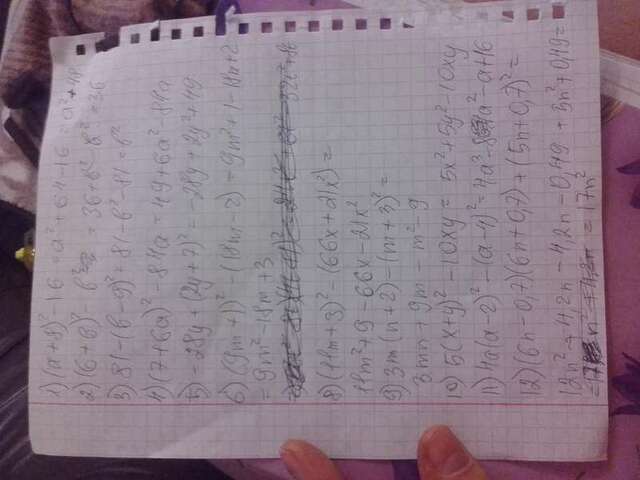 1) (a+8)²-16 = a²+64-16 = a²+48
2) (6+b)² - b² = 36+b²-b² = 36
3) 81-(b-9)² = 81-b²-81 = b²
4) (7+6a)² - 84a = 49+6a²-84a
5) -28y+(2y+7)² = -28y+2y²+49
6) (9m+1)² - (18m-2) = 9m²+1-18m+2
= 9m²-18m+3
8) (11m+3)² - (66x+21x²) =
11m²+9-66x-21x²
9) 3m(n+2)-(m+3)² =
3mn+9m-m²-9
10) 5(x+y)² - 10xy = 5x²+5y²-10xy
11) 4a(a-2)² - (a-4)² = 4a³-8a²-a+16
12) (6n-0,7)(6n+0,7)+(5n+0,7)² =
12n²+4,2n-4,2n-0,49+5n²+0,49=
= 17n²